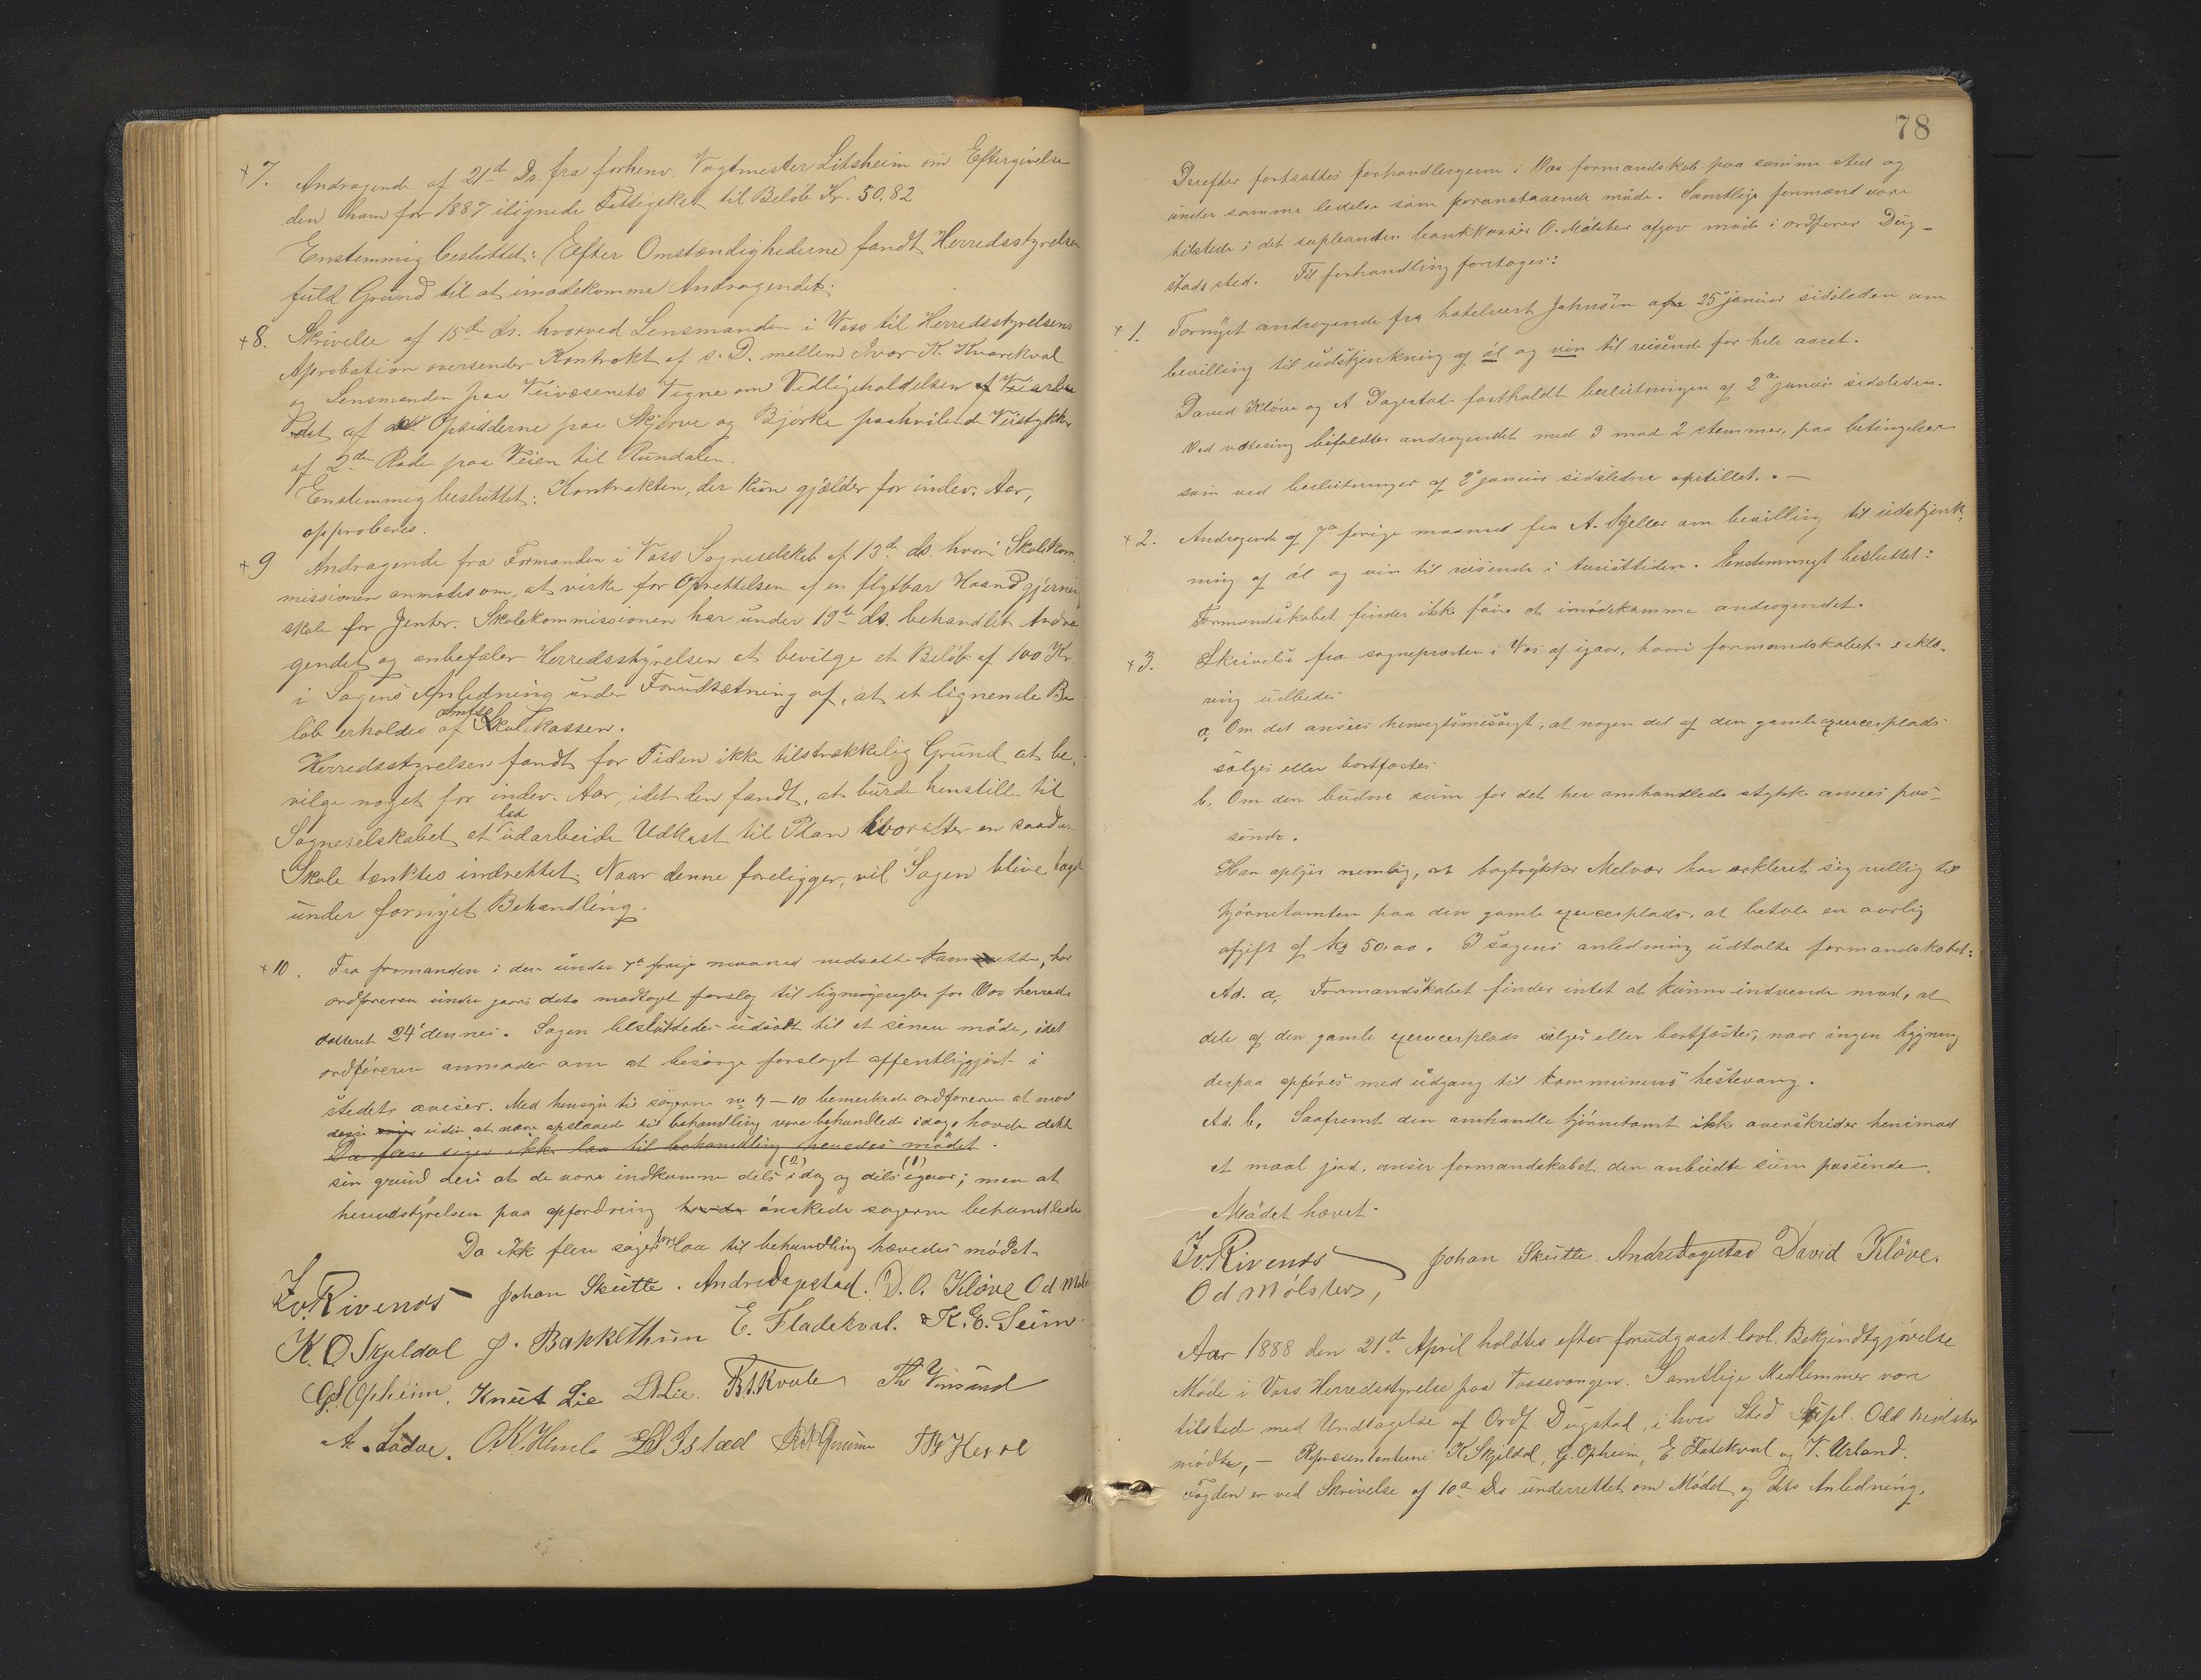 +7. Andragende af 21de Ds. fra forhenv. Vagtmester Litsheim om Eftergivelse
den ham for 1887 ilignede Fattigskat til Beløb Kr. 50,82
Enstemmig besluttet: Efter Omstændighederne fandt Herredsstyrelsen
fuld Grund til at imødekomme Andragendet.
+8. Skrivelse af 15de ds. hvorved Lensmanden i Voss til Herredsstyrelsens
Aprobation oversender Kontrakt af s. D. mellem Ivar K. Kvarekval
og Lensmanden paa Veivæsenets Vegne om Vedligeholdelsen af
det af Opsidderne paa Skjerve og Bjørke paahvilende Veistykke
af 2den Rode paa Veien til Rundalen.
Enstemmig besluttet: Kontrakten, der kun gjælder for indev. Aar,
approberes.
+9 Andragende fra Formanden i Voss Sogneselskab af 13de ds. hvori Skolekom
missionen anmodes om, at virke for Oprettelsen af en flytbar Haandgjernings
skole for Jenter. Skolekommissionen har under 19de ds. behandlet Andra
gendet og anbefaler Herredsstyrelsen at bevilge et Beløb af 100 Kr.
i Sagens Anledning under Forudsætning af, at et lignende Be
løb erholdes af Amtsskolekassen.
Herredsstyrelsen fandt for Tiden ikke tilstrækkelig Grund at be-
vilge noget for indev. Aar, idet den fandt, at burde henstille til
Sogneselskabet at lad udarbeide Udkast til Plan hvorefter en saadan
Skole tænktes indrettet. Naar denne foreligger, vil Sagen blive taget
under fornyet Behandling.
+10. Fra formanden i den under 7de forige maaned nedsatte komite, har
ordføreren under gaars dato modtaget forslag til ligningsregler for Vos herred
datteret 24' dennes. Sagen besluttedes udsadt til et senere møde, idet
ordføreren anmodes om at besørge forslaget offentliggjort i
stedets aviser. Med hensyn til sagerne no 7 – 10 bemerkede ordføreren at naar
disse uden at være opslaaed til behandling være behandlede idag, havde dette
Da flere sager ikke laa til behandling hevedes mødet.
sin grund deri at de vare indkomne dels (2) idag og dels (1) igaar; men at
herredsstyrelsen paa opfordring ønskede sagerne behandlede.
Da ikk flere sager forelaa til behandling hævedes mødet.
Iv. Rivenes Johan Skutle. Andre Dagestad. D. O. Kløve Od Møl
K. O Skjeldal J. Bapkethun E. Fladekval. K. E. Seim
G. Opheim. Knut Lie L Lie. B. Kvale Th Vinsand
A. Lødve. O K. Himle L Istad Th Herre
78
Derefter fortsattes forhandlingerne i Vos formandskab paa samme sted og
under samme ledelse som foranstaaende møde. Samtlige formænd vare
tilstede i det supleanten bankkasser O. Mølster afgav møde i ordfører Dug-
stads sted. Til forhandling foretoges:
+1. Fornyet andragende fra hotelvert Johnsen af 25' januar sidsleden om
bevilling til udskjenkning af øl og vin til reisende for hele aaret.
David Kløve og A Dagestad fastholdt beslutningen af 2' januar sidsleden.
Ved votering bifaldtes andragendet med 3 mod 2 stemmer, paa betingelser
som ved beslutninger af 2' januar sidsledne opstillet. –
+2. Andragende af 7de forige maaned fra A. Gjelle om bevilling til udskjenk-
ning af øl og vin til reisende i turisttiden. Enstemmigt besluttet:
Formandskabet finder ikke føie at imødekomme andragendet.
+3. Skrivelse fra sognepræsten i Vos af igaar, hvori formandskabets erklæ-
ring udbedes
a, Om det ansees hensigtsmæssigt, at nogen del af den gamle exercerplads
sælges eller bortfæstes
b, Om den budne sum for det her omhandlede stykke ansees pas-
sende.
Han oplyser nemlig, at bogtrykker Melvær har erkleret sig villig til
hjørnetomten paa den gamle exercerplads, at betale en aarlig
afgift af kr 50.00. I sagens anledning udtalte formandskabet:
Ad. a, Formandskabet finder intet at kunne indvende mod, at
dele af den gamle exercerplads sælges eller bortfæstes, naar ingen bygning
derpaa opføres med udgang til kommunens hestevang.
Ad. b, Saafremt den omhandle hjørnetomt ikke overskrider henimod
et maal jord, anser formandskabet den anbudte sum passende.
Mødet hævet.
Iv. Rivenes Johan Skutle. Andre Dagestad David Kløve.
Od Mølster,
Aar 1888 den 21de April holdtes efter forudgaaet lovl. Bekjendtgjørelse
Møde i Voss Herredsstyrelse paa Vossevangen. Samtlige Medlemmer vare
tilstede med Undtagelse af Ordf. Dugstad, i hvis Sted Supl. Odd Mølster
mødte, – Repræsentanterne K. Skjeldal, G. Opheim, E. Fladekval og V. Urland.
Fogden er ved Skrivelse af 10de Ds underrettet om Mødet og dets Anledning.